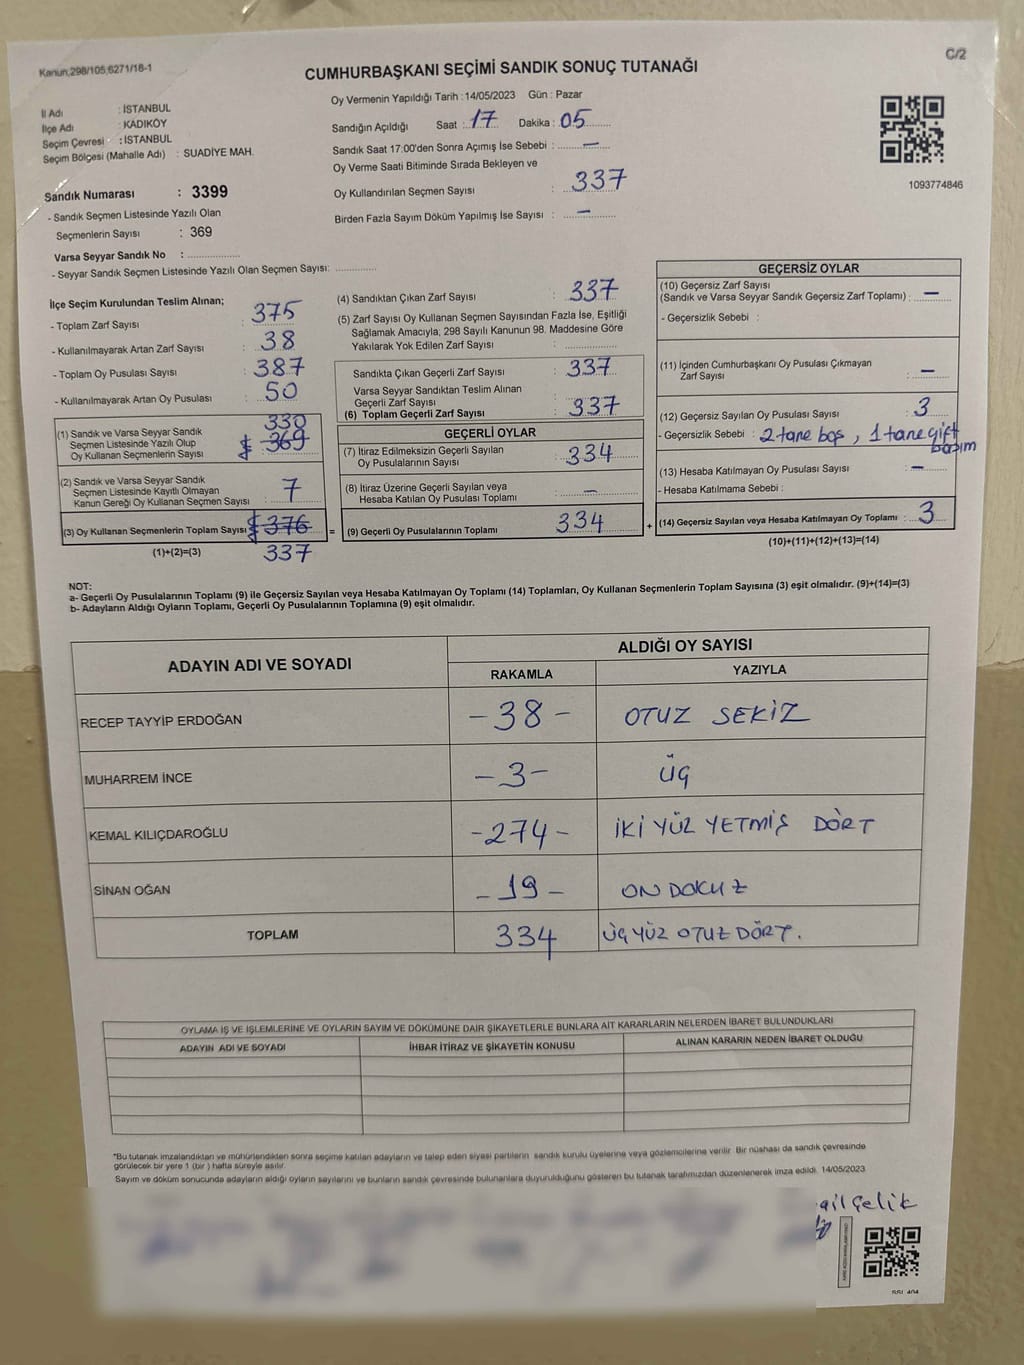 Kanun;298/105;6271/18-1
C/2
CUMHURBAŞKANI SEÇİMİ SANDIK SONUÇ TUTANAĞI
Oy Vermenin Yapıldığı Tarih :14/05/2023 Gün : Pazar
İl Adı : İSTANBUL
İlçe Adı : KADIKÖY
Seçim Çevresi : İSTANBUL
Seçim Bölgesi (Mahalle Adı) : SUADİYE MAH.
Sandık Numarası : 3399
- Sandık Seçmen Listesinde Yazılı Olan
Seçmenlerin Sayısı : 369
Varsa Seyyar Sandık No : ..................
- Seyyar Sandık Seçmen Listesinde Yazılı Olan Seçmen Sayısı: ..............
Sandığın Açıldığı Saat : 17 Dakika : 05
Sandık Saat 17:00'den Sonra Açımış İse Sebebi : —
Oy Verme Saati Bitiminde Sırada Bekleyen ve
Oy Kullandırılan Seçmen Sayısı : 337
Birden Fazla Sayım Döküm Yapılmış İse Sayısı : —
1093774846
İlçe Seçim Kurulundan Teslim Alınan;
- Toplam Zarf Sayısı : 375
- Kullanılmayarak Artan Zarf Sayısı : 38
- Toplam Oy Pusulası Sayısı : 387
- Kullanılmayarak Artan Oy Pusulası : 50
330
(1) Sandık ve Varsa Seyyar Sandık
Seçmen Listesinde Yazılı Olup
Oy Kullanan Seçmenlerin Sayısı : 369
(2) Sandık ve Varsa Seyyar Sandık
Seçmen Listesinde Kayıtlı Olmayan
Kanun Gereği Oy Kullanan Seçmen Sayısı : 7
(3) Oy Kullanan Seçmenlerin Toplam Sayısı 376 =
(1)+(2)=(3) 337
(4) Sandıktan Çıkan Zarf Sayısı : 337
(5) Zarf Sayısı Oy Kullanan Seçmen Sayısından Fazla İse, Eşitliği
Sağlamak Amacıyla, 298 Sayılı Kanunun 98. Maddesine Göre
Yakılarak Yok Edilen Zarf Sayısı : ..................
Sandıkta Çıkan Geçerli Zarf Sayısı : 337
Varsa Seyyar Sandıktan Teslim Alınan
Geçerli Zarf Sayısı :
(6) Toplam Geçerli Zarf Sayısı : 337
GEÇERLİ OYLAR
(7) İtiraz Edilmeksizin Geçerli Sayılan
Oy Pusulalarının Sayısı : 334
(8) İtiraz Üzerine Geçerli Sayılan veya
Hesaba Katılan Oy Pusulası Toplamı : —
(9) Geçerli Oy Pusulalarının Toplamı : 334 +
GEÇERSİZ OYLAR
(10) Geçersiz Zarf Sayısı
(Sandık ve Varsa Seyyar Sandık Geçersiz Zarf Toplamı) : —
- Geçersizlik Sebebi :
(11) İçinden Cumhurbaşkanı Oy Pusulası Çıkmayan
Zarf Sayısı : —
(12) Geçersiz Sayılan Oy Pusulası Sayısı : 3
- Geçersizlik Sebebi : 2 tane boş, 1 tane çift
basım
(13) Hesaba Katılmayan Oy Pusulası Sayısı : —
- Hesaba Katılmama Sebebi :
(14) Geçersiz Sayılan veya Hesaba Katılmayan Oy Toplamı : 3
(10)+(11)+(12)+(13)=(14)
NOT:
a- Geçerli Oy Pusulalarının Toplamı (9) ile Geçersiz Sayılan veya Hesaba Katılmayan Oy Toplamı (14) Toplamları, Oy Kullanan Seçmenlerin Toplam Sayısına (3) eşit olmalıdır. (9)+(14)=(3)
b- Adayların Aldığı Oyların Toplamı, Geçerli Oy Pusulalarının Toplamına (9) eşit olmalıdır.
ADAYIN ADI VE SOYADI ALDIĞI OY SAYISI
RAKAMLA YAZIYLA
RECEP TAYYİP ERDOĞAN -38- OTUZ SEKİZ
MUHARREM İNCE -3- ÜÇ
KEMAL KILIÇDAROĞLU -274- İKİ YÜZ YETMİŞ DÖRT
SİNAN OĞAN -19- ON DOKUZ
TOPLAM 334 ÜÇ YÜZ OTUZ DÖRT.
OYLAMA İŞ VE İŞLEMLERİNE VE OYLARIN SAYIM VE DÖKÜMÜNE DAİR ŞİKAYETLERLE BUNLARA AİT KARARLARIN NELERDEN İBARET BULUNDUKLARI
ADAYIN ADI VE SOYADI İHBAR İTİRAZ VE ŞİKAYETİN KONUSU ALINAN KARARIN NEDEN İBARET OLDUĞU
*Bu tutanak imzalandıktan ve mühürlendikten sonra seçime katılan adayların ve talep eden siyasi partilerin sandık kurulu üyelerine veya gözlemcilerine verilir. Bir nüshası da sandık çevresinde
görülecek bir yere 1 (bir) hafta süreyle asılır.
Sayım ve döküm sonucunda adayların aldığı oyların sayılarını ve bunların sandık çevresinde bulunanlara duyurulduğunu gösteren bu tutanak tarafımızdan düzenlenerek imza edildi. 14/05/2023
ail Çelik